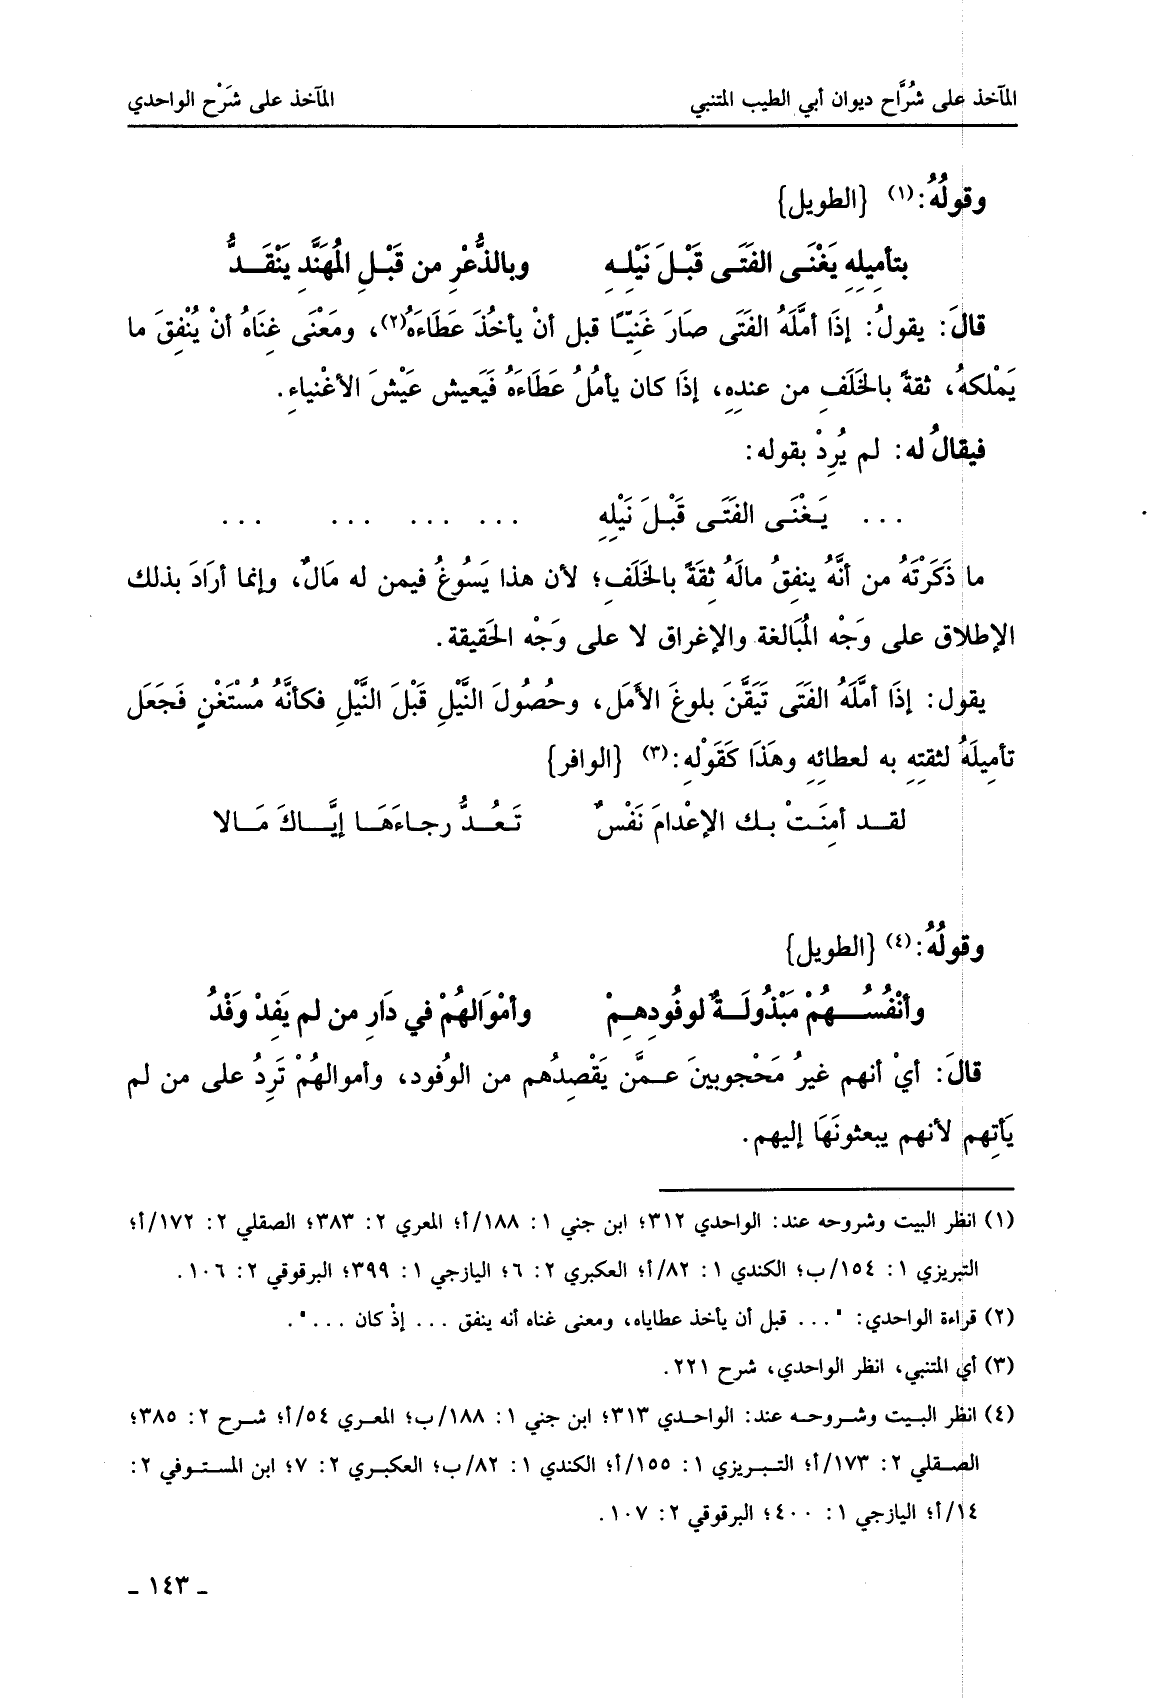 المآخذ على شُرَّاح ديوان أبي الطيب المتنبي المآخذ على شَرْح الواحدي
وقولُهُ:(١) {الطويل}
بتأميلِهِ يَغْنَى الفَتَى قَبْلَ نَيْلِهِ وبالذُّعْرِ من قَبْلِ المُهَنَّدِ يَنْقَدُّ
قالَ: يقولُ: إذَا أمَّلَهُ الفَتَى صَارَ غَنِيّاً قبل أنْ يأخُذَ عَطَاءَهُ(٢)، ومَعْنَى غِنَاهُ أنْ يُنْفِقَ ما
يَمْلكهُ، ثقةً بالخَلَفِ من عندِهِ، إذَا كان يأمُلُ عَطَاءَهُ فَيَعيش عَيْشَ الأغْنياءِ.
فيقالُ له: لم يُرِدْ بقوله:
... يَغْنَى الفَتَى قَبْلَ نَيْلِهِ ... ... ... ...
ما ذَكَرْتَهُ من أنَّهُ ينفِقُ مالَهُ ثِقَةً بالخَلَفِ؛ لأن هذا يَسُوغُ فيمن له مَالٌ، وإنما أرَادَ بذلك
الإطلاق على وَجْه المُبَالغة والإغراق لا على وَجْه الحَقيقة.
يقول: إذَا أمَّلَهُ الفَتَى تَيَقَّنَ بلوغَ الأمَل، وحُصُولَ النَّيْلِ قَبْلَ النَّيْلِ فكأنَّهُ مُسْتَغْنٍ فَجَعَل
تأمِيلَهُ لثقتِهِ به لعطائِهِ وهَذَا كَقَوْلهِ:(٣) {الوافر}
لقد أمِنَتْ بك الإعْدامَ نَفْسٌ تَعُدُّ رجاءَهَا إيَّاكَ مَالا
وقولُهُ:(٤) {الطويل}
وأنْفُسُهُمْ مَبْذُولَةٌ لوفُودِهِمْ وأمْوَالهُمْ في دَارِ من لم يَفِدْ وَفْدُ
قالَ: أيْ أنهم غيرُ مَحْجوبينَ عمَّن يَقْصِدُهم من الوُفود، وأموالهُمْ تَرِدُ على من لم
يَأتِهم لأنهم يبعثونَهَا إليهم.
(١) انظر البيت وشروحه عند: الواحدي ٣١٢؛ ابن جني ١: ١٨٨/أ؛ المعري ٢: ٣٨٣؛ الصقلي ٢: ١٧٢/أ؛
التبريزي ١: ١٥٤/ب؛ الكندي ١: ٨٢/أ؛ العكبري ٢: ٦؛ اليازجي ١: ٣٩٩؛ البرقوقي ٢: ١٠٦.
(٢) قراءة الواحدي: "... قبل أن يأخذ عطاياه، ومعنى غناه أنه ينفق ... إذْ كان ...".
(٣) أي المتنبي، انظر الواحدي، شرح ٢٢١.
(٤) انظر البيت وشروحه عند: الواحدي ٣١٣؛ ابن جني ١: ١٨٨/ب؛ المعري ٥٤/أ؛ شرح ٢: ٣٨٥؛
الصقلي ٢: ١٧٣/أ؛ التبريزي ١: ١٥٥/أ؛ الكندي ١: ٨٢/ب؛ العكبري ٢: ٧؛ ابن المستوفي ٢:
١٤/أ؛ اليازجي ١: ٤٠٠؛ البرقوقي ٢: ١٠٧.
ـ ١٤٣ ـ